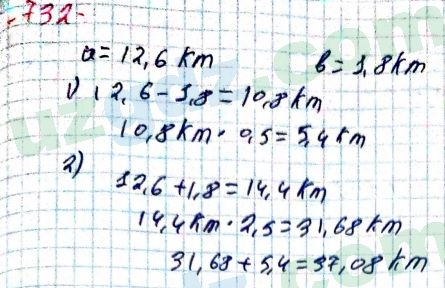 732-
a = 12,6 km b = 1,8 km
1) 12,6 - 1,8 = 10,8 km
10,8 km · 0,5 = 5,4 km
2)
12,6 + 1,8 = 14,4 km
14,4 km · 2,5 = 31,68 km
31,68 + 5,4 = 37,08 km